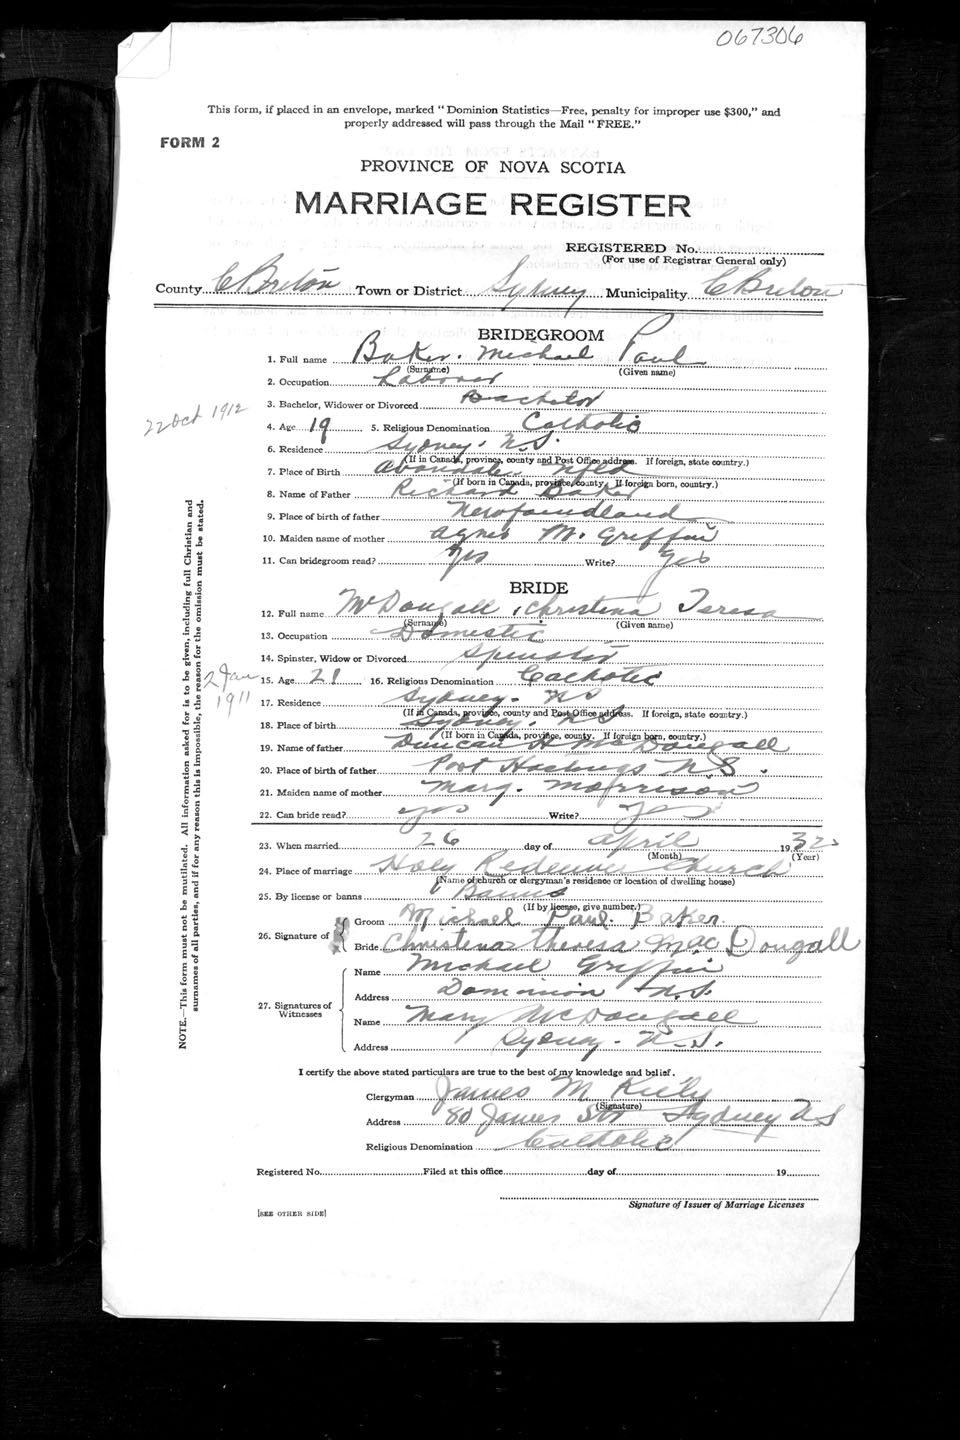 067306
This form, if placed in an envelope, marked "Dominion Statistics—Free, penalty for improper use $300," and
properly addressed will pass through the Mail "FREE."
FORM 2
PROVINCE OF NOVA SCOTIA
MARRIAGE REGISTER
REGISTERED No.
(For use of Registrar General only)
County C Breton Town or District Sydney Municipality C Breton
BRIDEGROOM
1. Full name Baker. Michael Paul
(Surname) (Given name)
2. Occupation Laborer
3. Bachelor, Widower or Divorced Bachelor
22 Oct 1912
4. Age 19 5. Religious Denomination Catholic
6. Residence Sydney. N.S.
(If in Canada, province, county and Post Office address. If foreign, state country.)
7. Place of Birth Avondale Nfld
(If born in Canada, province, county. If foreign born, country.)
8. Name of Father Richard Baker
9. Place of birth of father Newfoundland
10. Maiden name of mother Agnes M. Griffin
11. Can bridegroom read? Yes Write? Yes
BRIDE
12. Full name McDougall, Christena Teresa
(Surname) (Given name)
13. Occupation Domestic
14. Spinster, Widow or Divorced Spinster
2 Jan 1911
15. Age 21 16. Religious Denomination Catholic
17. Residence Sydney. NS
(If in Canada, province, county and Post Office address. If foreign, state country.)
18. Place of birth Sydney. N S
(If born in Canada, province, county. If foreign born, country.)
19. Name of father Duncan H McDougall
20. Place of birth of father Port Hastings N.S.
21. Maiden name of mother Mary. Morrison
22. Can bride read? Yes Write? Yes
23. When married 26 day of April 1932
(Month) (Year)
24. Place of marriage Holy Redeemer Church
(Name of church or clergyman's residence or location of dwelling house)
25. By license or banns Banns
(If by license, give number.)
26. Signature of
Groom Michael Paul Baker.
Bride Christena Theresa MacDougall
27. Signatures of Witnesses
Name Michael Griffin
Address Dominion N.S.
Name Mary McDougall
Address Sydney. N.S.
I certify the above stated particulars are true to the best of my knowledge and belief.
Clergyman James M Kiely
(Signature)
Address 80 James Str Sydney NS
Religious Denomination Catholic
Registered No. Filed at this office day of 19
Signature of Issuer of Marriage Licenses
[SEE OTHER SIDE]
NOTE.—This form must not be mutilated. All information asked for is to be given, including full Christian and
surnames of all parties, and if for any reason this is impossible, the reason for the omission must be stated.